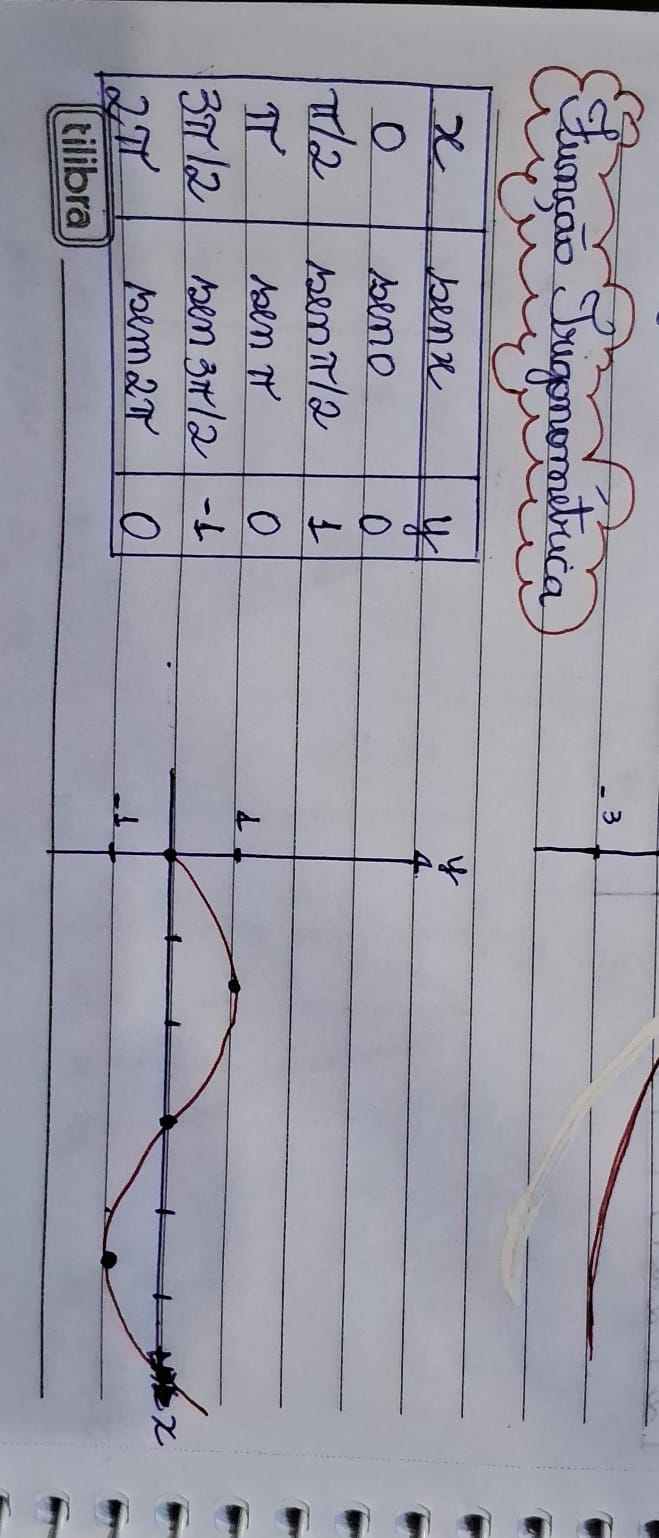 -3
Função Trigonométrica
x senx y
0 sen0 0
π/2 senπ/2 1
π sen π 0
3π/2 sen 3π/2 -1
2π sem2π 0
y
1
-1
x
tilibra